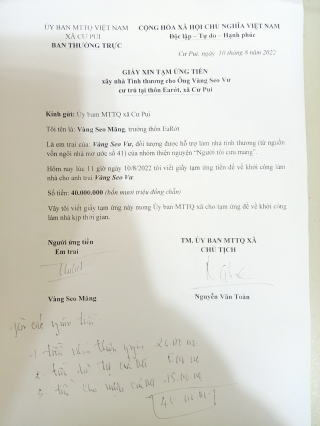 ỦY BAN MTTQ VIỆT NAM
XÃ CƯ PUI
BAN THƯỜNG TRỰC
CỘNG HÒA XÃ HỘI CHỦ NGHĨA VIỆT NAM
Độc lập – Tự do – Hạnh phúc
Cư Pui, ngày 10 tháng 8 năm 2022
GIẤY XIN TẠM ỨNG TIỀN
xây nhà Tình thương cho Ông Vàng Seo Vư
cư trú tại thôn Earớt, xã Cư Pui
Kính gửi: Ủy ban MTTQ xã Cư Pui
Tôi tên là: Vàng Seo Măng, trưởng thôn EaRớt
Là em trai của: Vàng Seo Vư, đối tượng được hỗ trợ làm nhà tình thương (từ nguồn
vốn ngôi nhà mơ ước số 41) của nhóm thiện nguyện "Người tôi cưu mang".
Hôm nay lúc 11 giờ ngày 10/8/2022 tôi viết giấy tạm ứng tiền để về khởi công
làm nhà cho anh trai Vàng Seo Vư.
Số tiền: 40.000.000 (bốn mươi triệu đồng chẵn)
Vậy tôi viết giấy tạm ứng này mong Ủy ban MTTQ xã cho tạm ứng để về khởi công
làm nhà kịp thời gian.
Người ứng tiền
Em trai
TM. ỦY BAN MTTQ XÃ
CHỦ TỊCH
Vàng Seo Măng
Nguyễn Văn Toàn